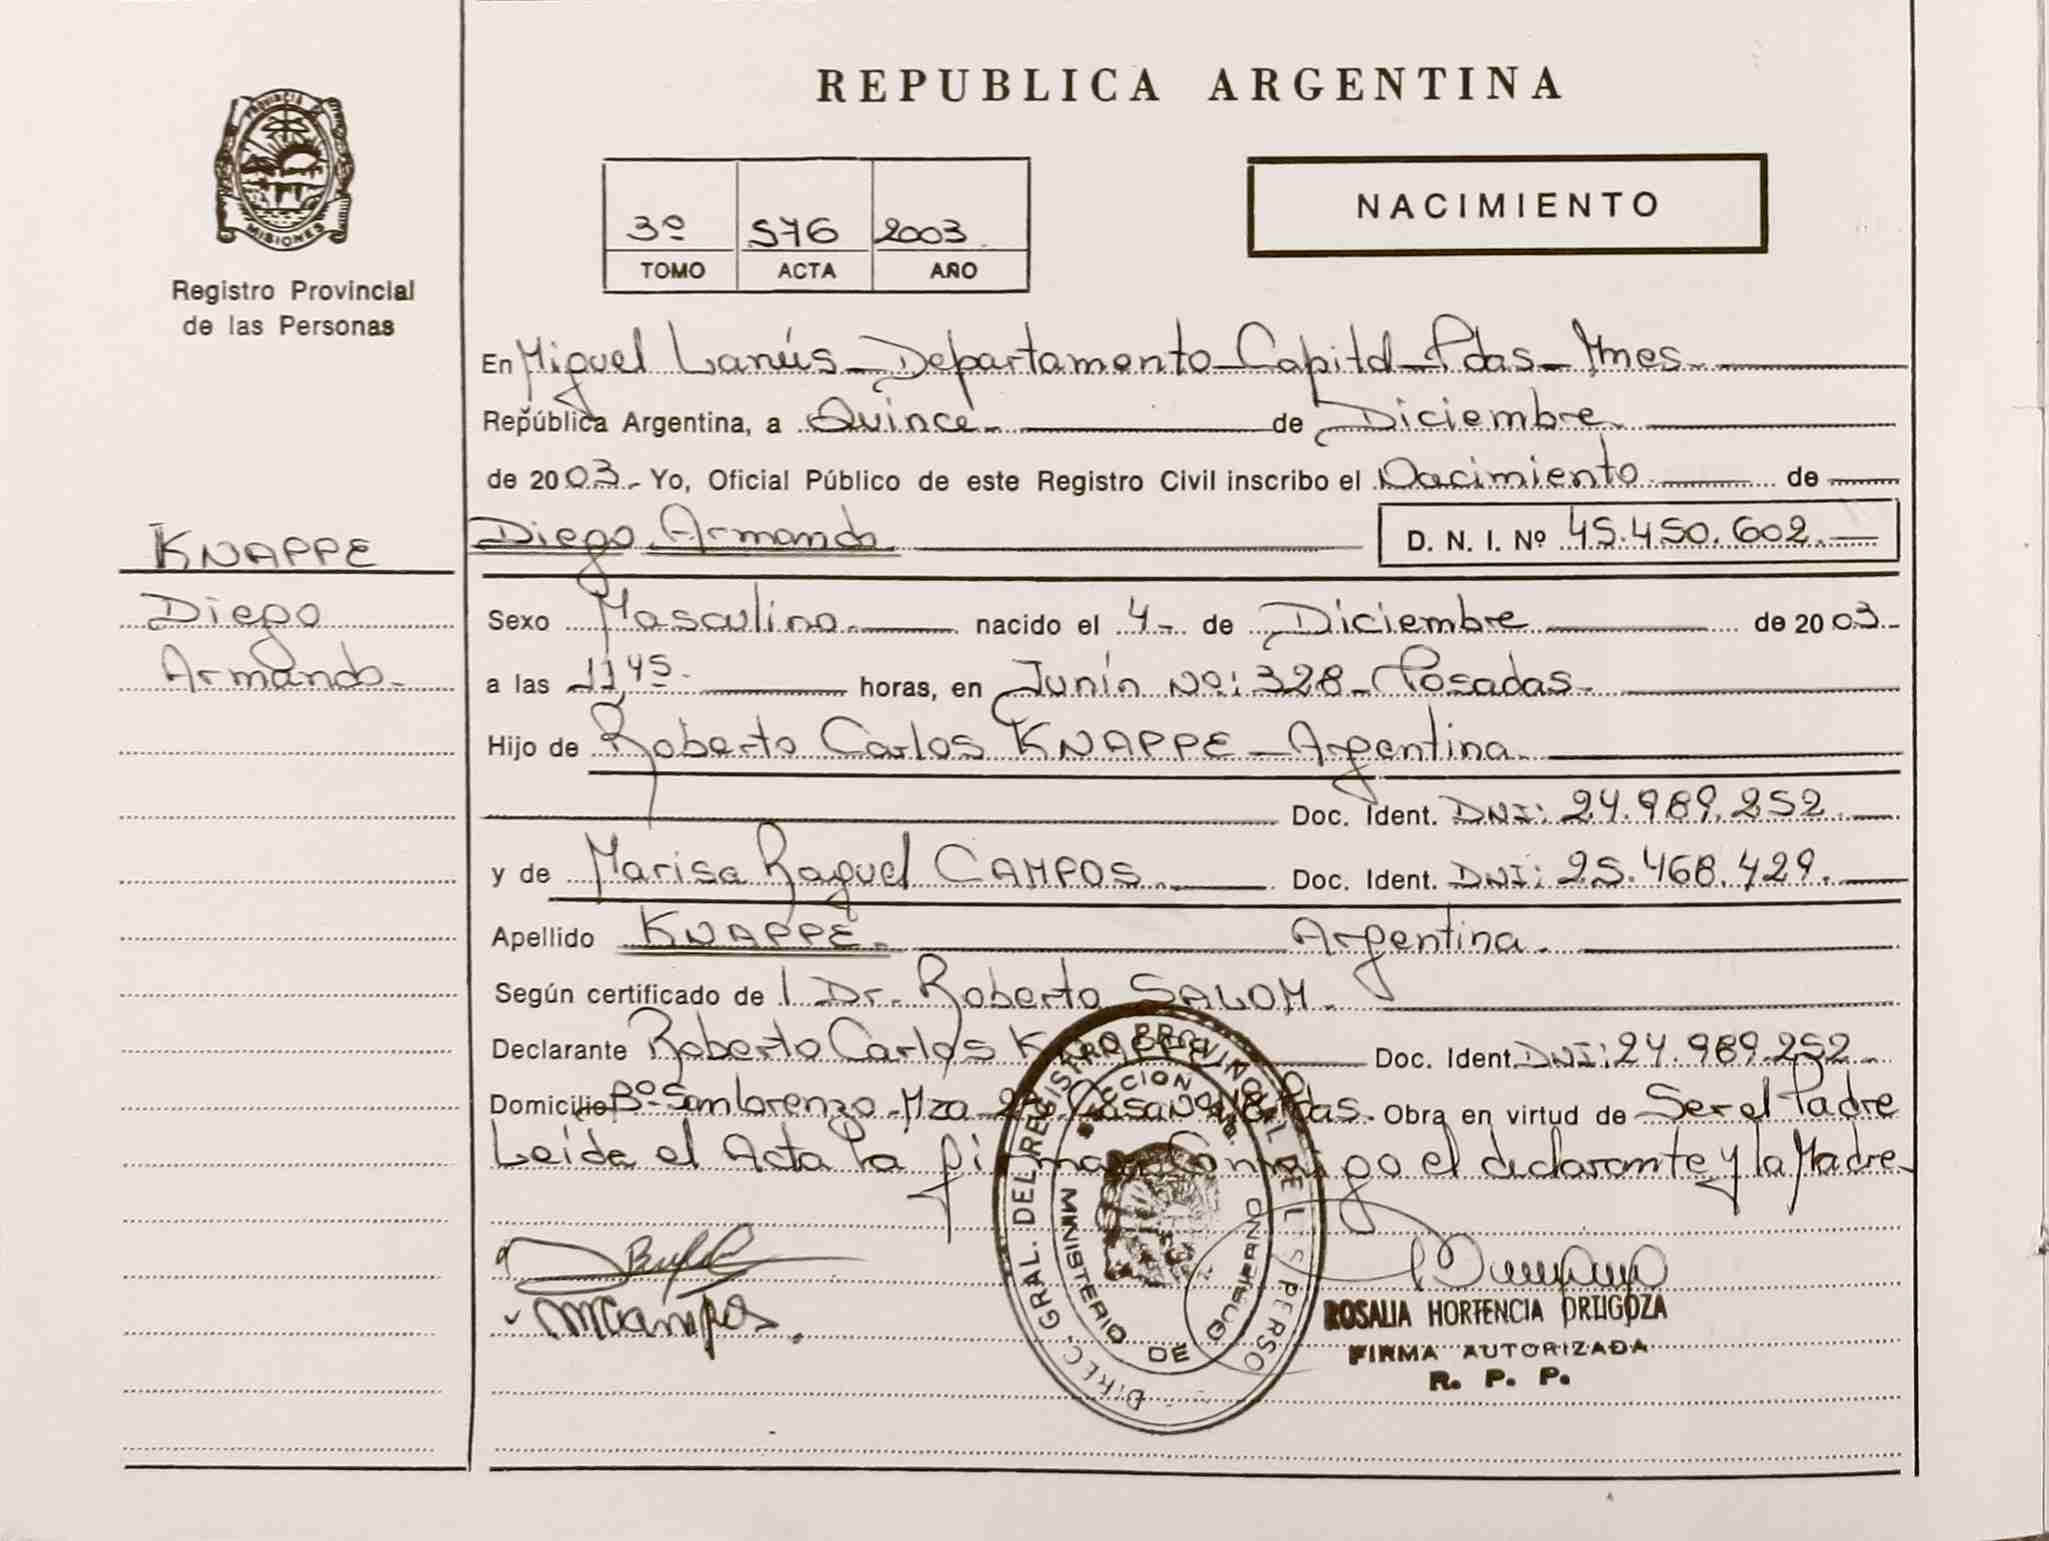 REPUBLICA ARGENTINA
PROVINCIA DE
MISIONES
Registro Provincial
de las Personas
3º 576 2003
TOMO ACTA AÑO
NACIMIENTO
En Miguel Lanús - Departamento Capital - Pdas - Mnes.
República Argentina, a Quince de Diciembre
de 2003. Yo, Oficial Público de este Registro Civil inscribo el Nacimiento de
KNAPPE
Diego Armando D. N. I. Nº 45.450.602.
Diego
Armando.
Sexo Masculino. nacido el 4 - de Diciembre de 2003
a las 11,45. horas, en Junín Nº: 328 - Posadas.
Hijo de Roberto Carlos KNAPPE - Argentina.
Doc. Ident. DNI: 24.989.252.
y de Marisa Raquel CAMPOS. Doc. Ident. DNI: 25.468.429.
Apellido KNAPPE. Argentina.
Según certificado de l Dr. Roberto SALOM.
Declarante Roberto Carlos KNAPPE Doc. Ident. DNI: 24.989.252
Domicilio Bº San Lorenzo - Mza Casa Nº Pdas. Obra en virtud de Ser el Padre
Leída el Acta la firman Conmigo el declarante y la Madre.
DIREC. GRAL. DEL REGISTRO PROVINCIAL DE LAS PERSO
MINISTERIO DE GOBIERNO
MCampos.
ROSALIA HORTENCIA ORTIGOZA
FIRMA AUTORIZADA
R. P. P.